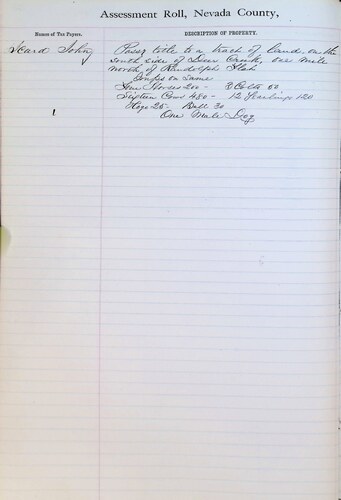 Assessment Roll, Nevada County,
Names of Tax Payers.
DESCRIPTION OF PROPERTY.
John
Possy title to a track of land, on the
south side of Deer Creek, one mile
north of Randolph Flat
Imps on Same
Horses 200 - 3 Colts 60
Sixteen Cows 480 - 12 Yearlings 120
Hogs 25 - Bull 30
One Male Dog
1